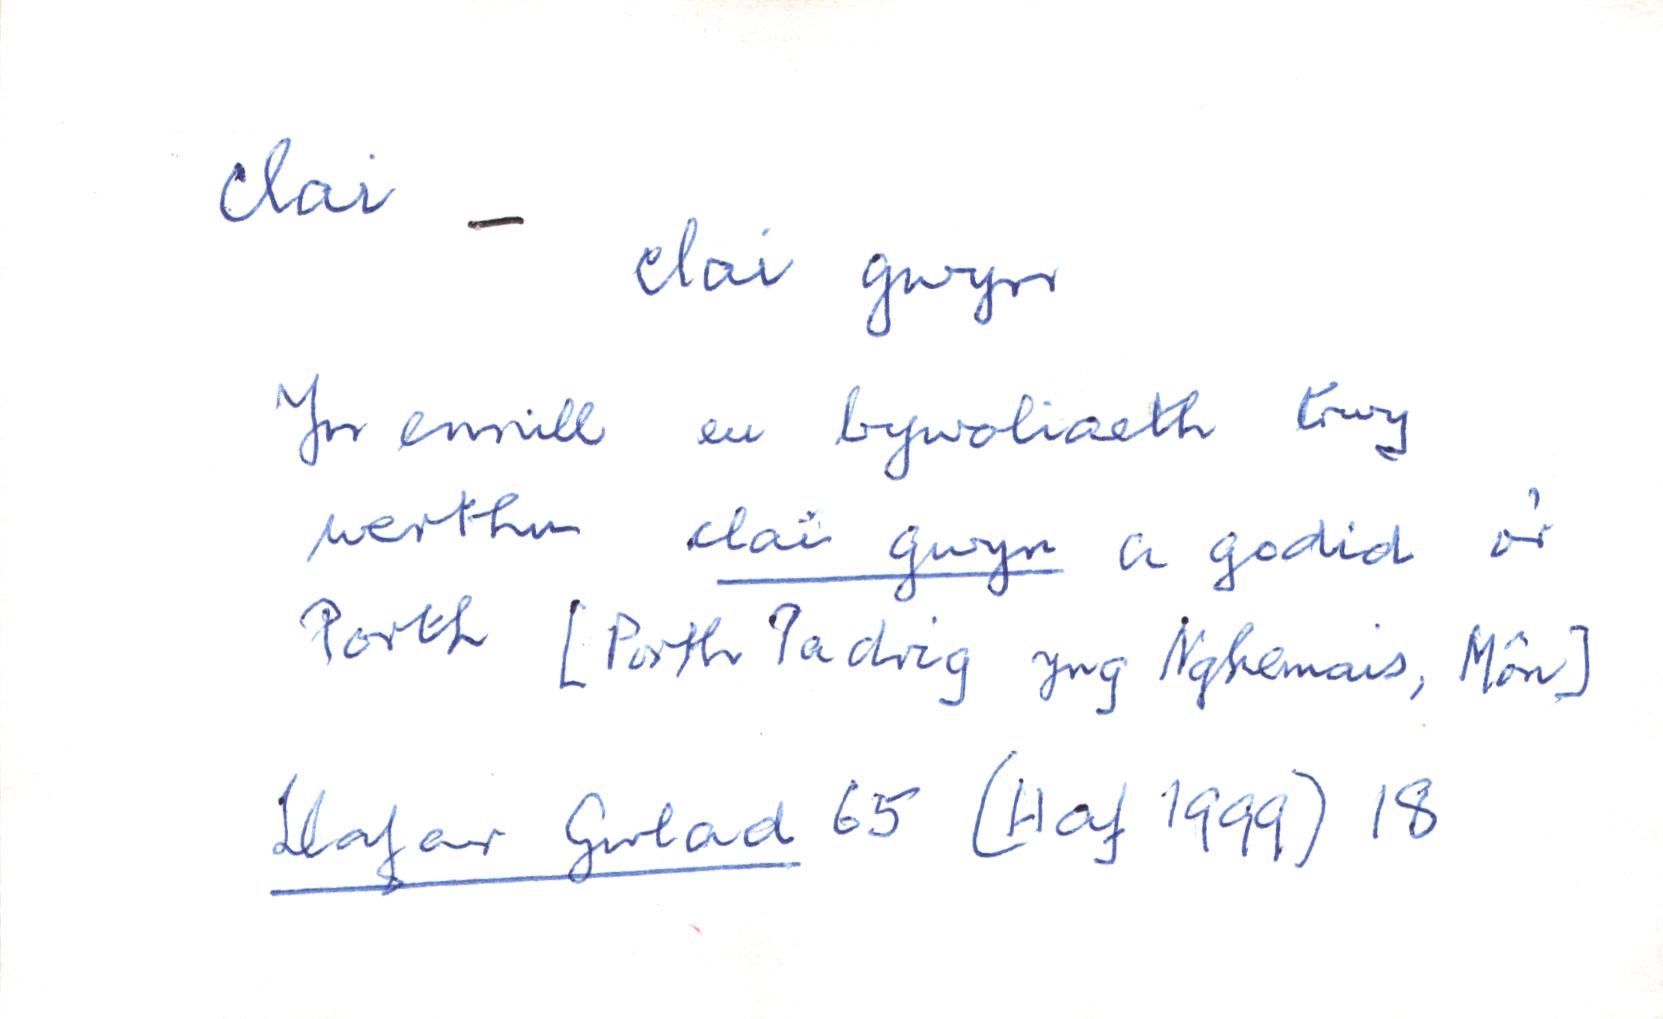 clai –
clai gwyn
Yn ennill eu bywoliaeth trwy
werthu clai gwyn a godid o'r
Porth [Porth Padrig yng Nghemais, Môn]
Llafar Gwlad 65 (Haf 1999) 18